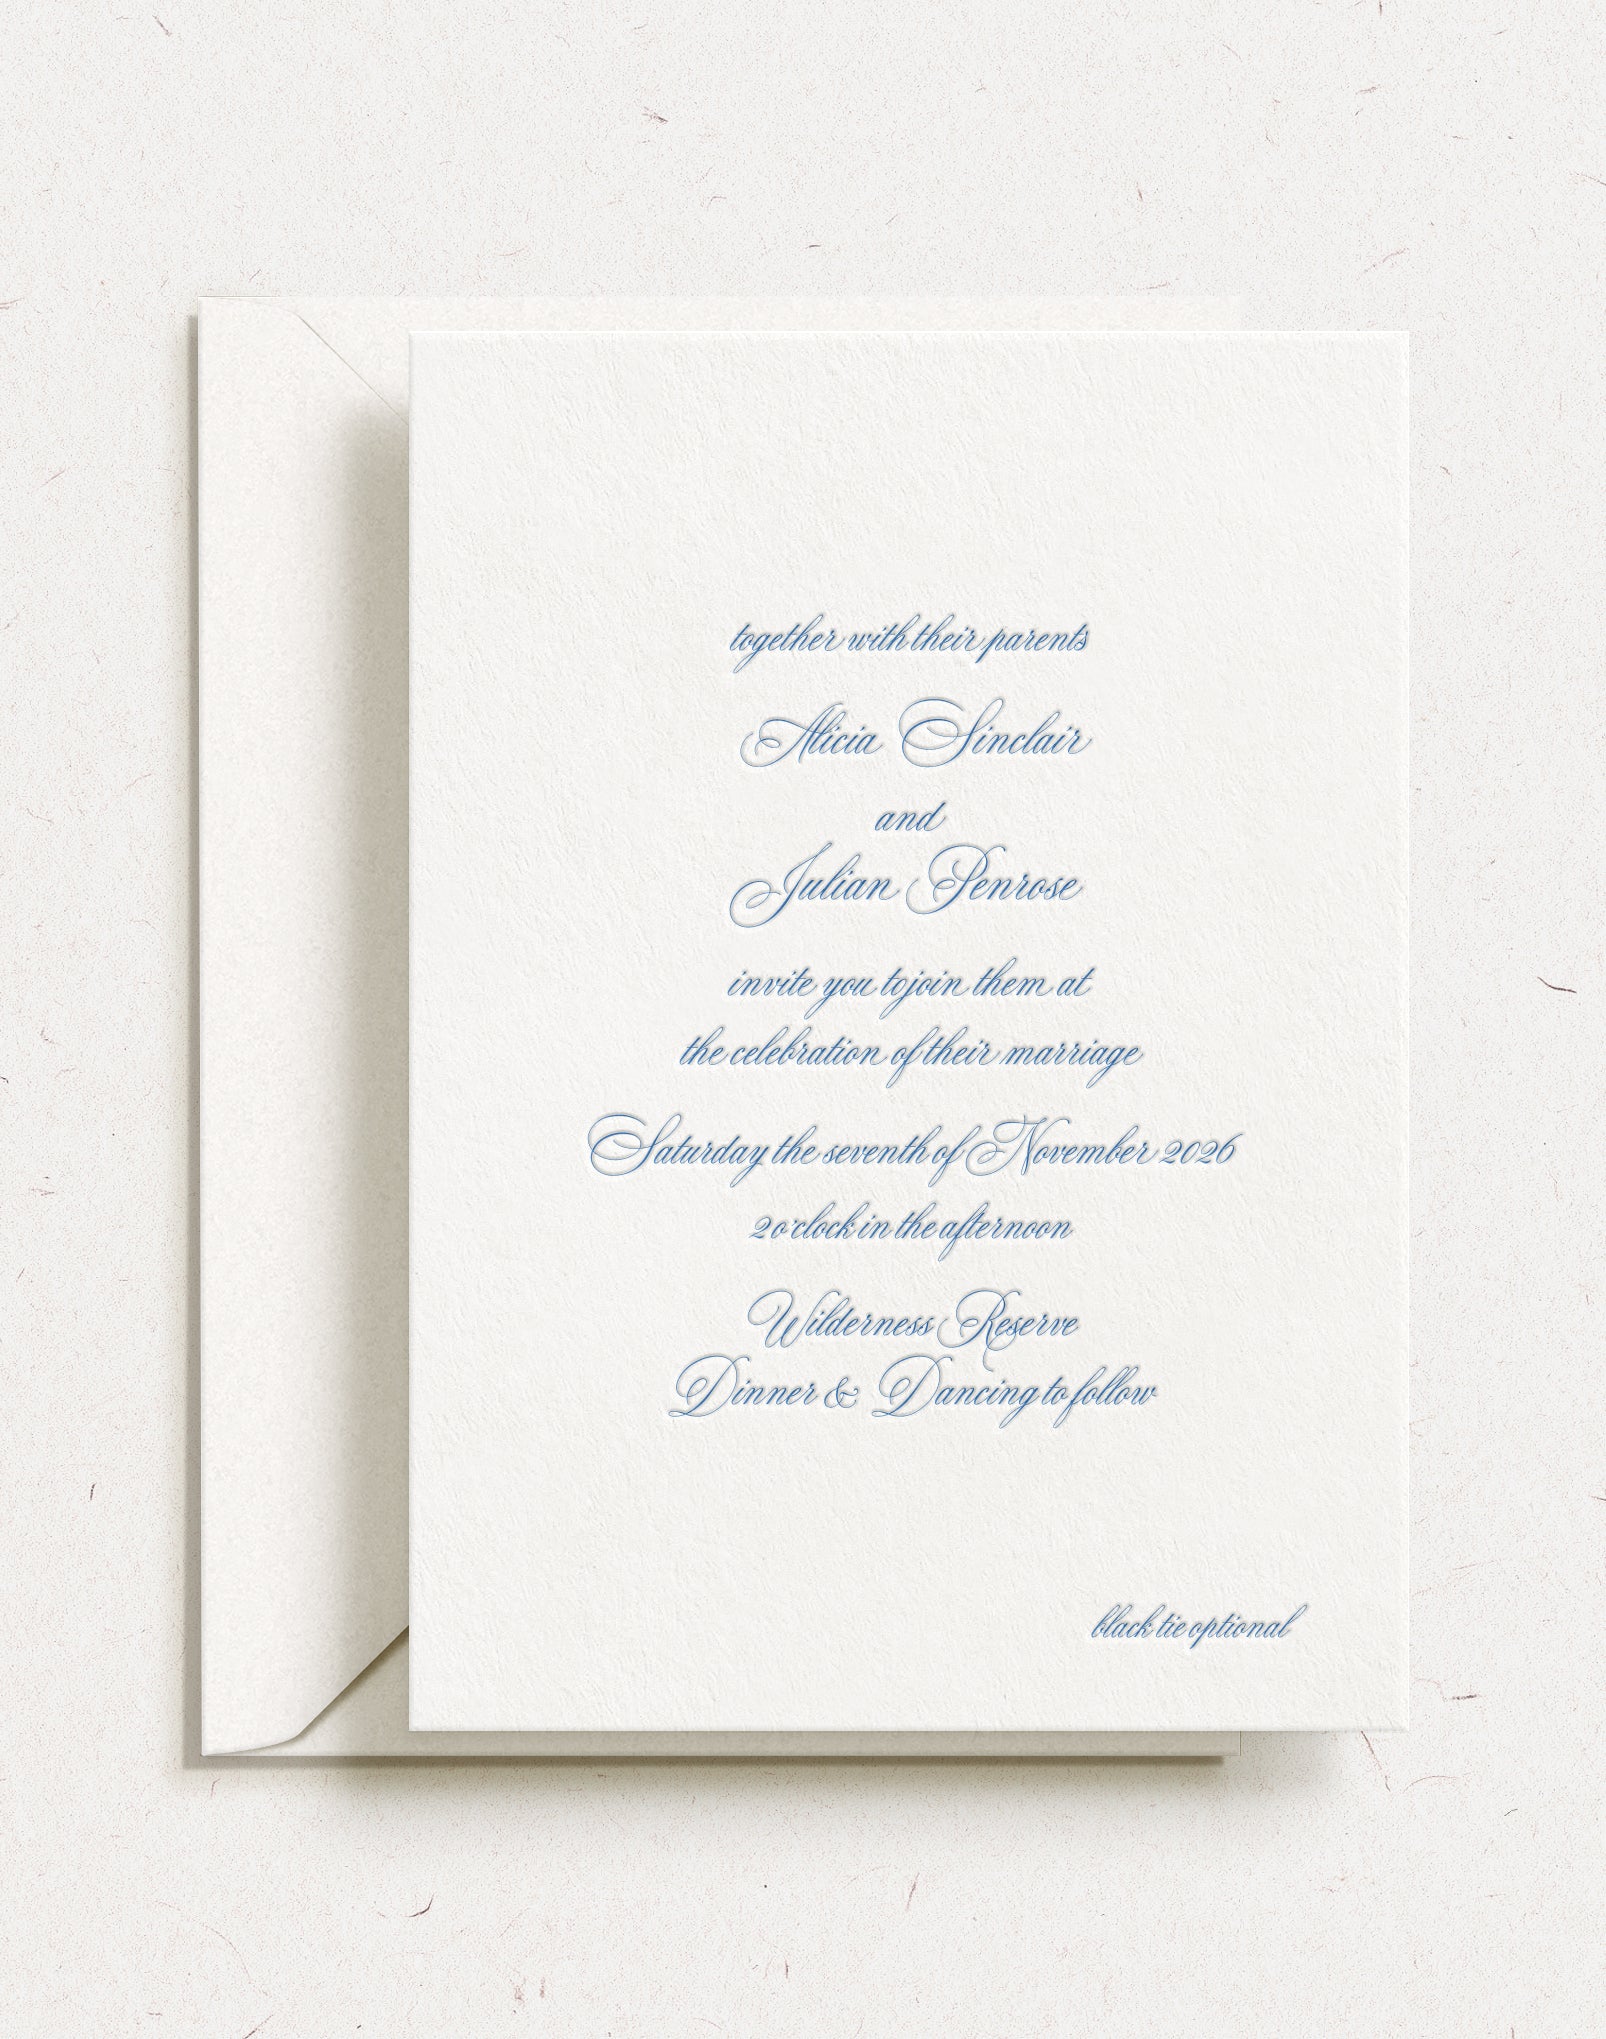 together with their parents
Alicia Sinclair
and
Julian Penrose
invite you to join them at
the celebration of their marriage
Saturday the seventh of November 2026
2 o'clock in the afternoon
Wilderness Reserve
Dinner & Dancing to follow
black tie optional